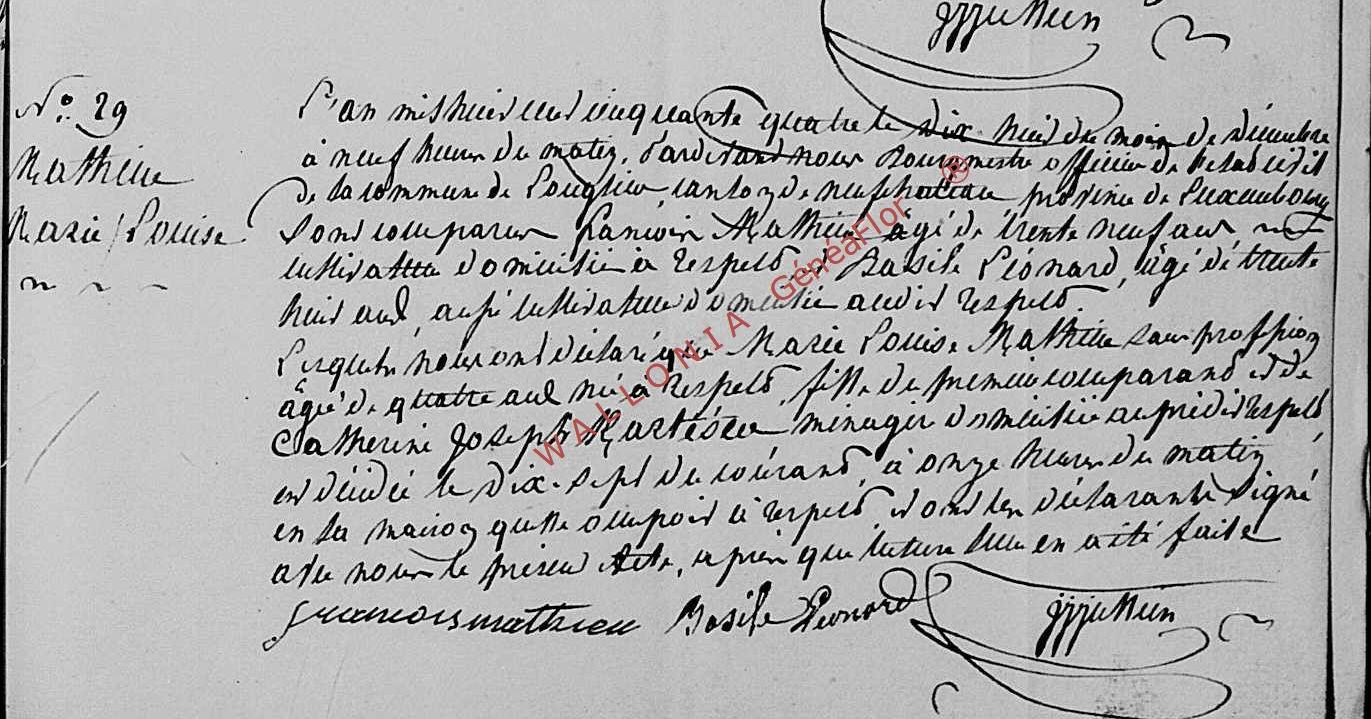 jjjullien
N.° 29
Mathieu
Marie Louise
L'an mil huit cent cinquante quatre le dix huit du moin de décembre
à neuf heures du matin, pardevand nous Bourgmestre officier de l'etat civil
de la commune de Longlier, canton de neufchateau province de Luxembourg
sont comparus francois Mathieu âgé de trente neuf ans
cultivateur domicilié à respelt, et Basile Léonard, âgé de trente
huit ans, aussi cultivateur domicilié audit respelt.
Lesquels nous ont déclaré que Marie Louise Mathieu sans profession
âgée de quatre ans née à Respelt, fille du premier comparand et de
Catherine Joseph menagère domiciliée au prédit respelt
est décédée le dix-sept du courand, à onze heures du matin
en la maison quelle occupoit à respelt et ont les déclarants signé
avec nous le présent Acte, après que lecture leur en a été faite
francois mathieu Basile Léonard jjjullien
WALLONIA GénéaFlor ®